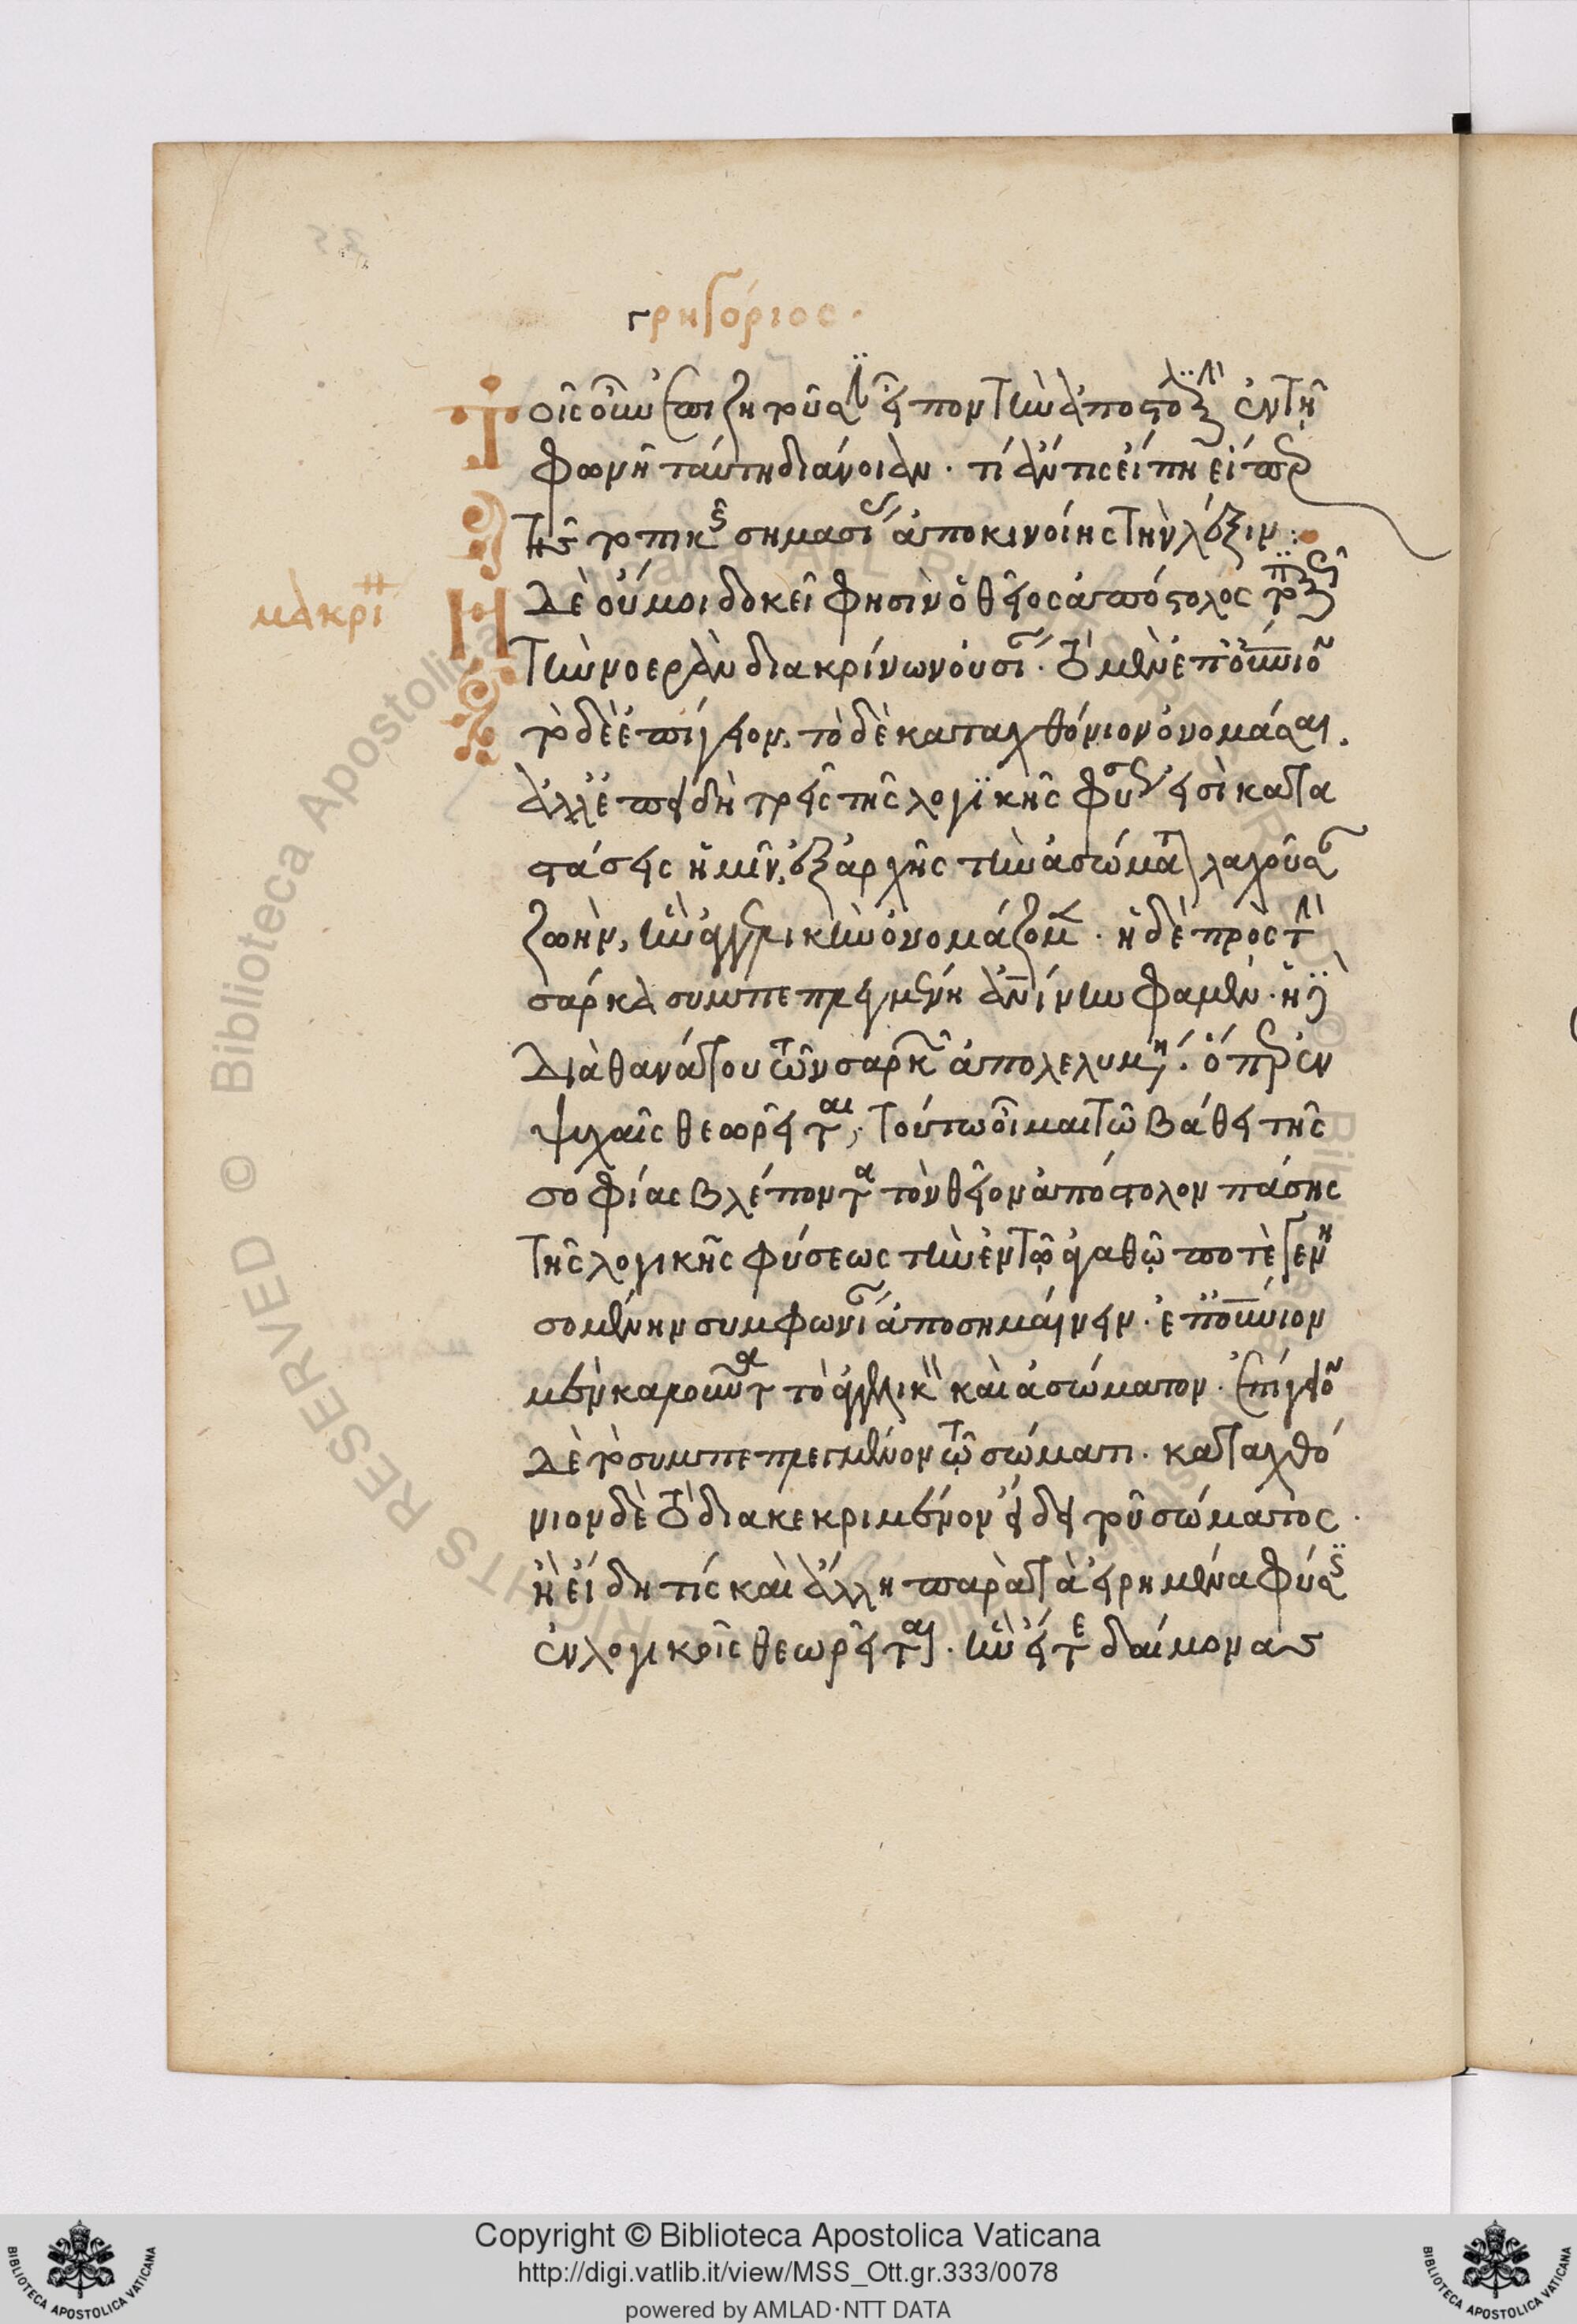 Γρηγόριος.
Τοῖς οὖν ἐπιζητοῦσι εἶπον τὴν ἀποστολικὴν ἐν τῇ
φωνῇ ταύτῃ διάνοιαν. τί ἄν τις εἴπῃ εἴπερ
τῆς τοπικῆς σημασίας ἀποκινοίης τὴν λέξιν:
μακρίνα
Ἡ δὲ οὔ μοι δοκεῖ φησὶν ὁ θεῖος ἀπόστολος τοπικῶς
τὴν νοερὰν διακρίνων οὐσίαν. τὸ μὲν ἐπουράνιον
τὸ δὲ ἐπίγειον, τὸ δὲ καταχθόνιον ὀνομάσαι.
ἀλλ' ἐπειδὴ τρεῖς τῆς λογικῆς φύσεως εἰσὶ κατα
στάσεις ἡ μὲν, ἐξ ἀρχῆς τὴν ἀσώματον λαχοῦσα
ζωὴν, ἣν ἀγγελικὴν ὀνομάζομεν. ἡ δὲ πρὸς τὴν
σάρκα συμπεπλεγμένη ἀνίνην φαμὲν. ἡ δὲ
διὰ θανάτου τῶν σαρκῶν ἀπολελυμένη. ὅπερ ἐν
ψυχαῖς θεωρεῖται, τούτω οἶμαι τῶ βάθει τῆς
σοφίας βλέποντα τὸν θεῖον ἀπόστολον πάσης
τῆς λογικῆς φύσεως τὴν ἐν τῷ ἀγαθῷ ποτὲ γενη
σομένην συμφωνίαν ἀποσημαίνειν. ἐπουνιον
μὲν καλοῦντα τὸ ἀγγελικὸν καὶ ἀσώματον. ἐπίγειον
δὲ τὸ συμπεπλεγμένον τῷ σώματι. καταχθό
νιον δὲ τὸ διακεκριμένον ἤδη τοῦ σώματος.
ἢ εἰ δή τις καὶ ἄλλη παρὰ τὰ εἰρημένα φύσις
ἐν λογικοῖς θεωρεῖται. ἣν εἴτε δαίμονας
Copyright © Biblioteca Apostolica Vaticana
http://digi.vatlib.it/view/MSS_Ott.gr.333/0078
powered by AMLAD·NTT DATA